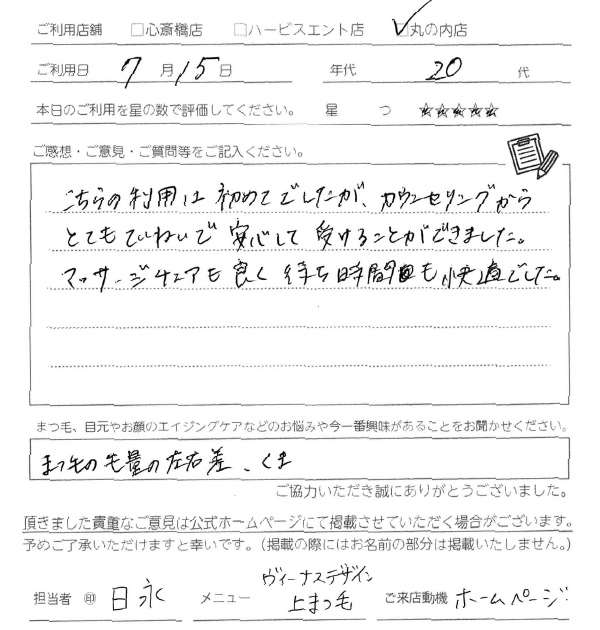 ご利用店舗 □心斎橋店 □ハービスエント店 □丸の内店
ご利用日 7 月 15 日 年代 20 代
本日のご利用を星の数で評価してください。 星 つ ☆☆☆☆☆
ご感想・ご意見・ご質問等をご記入ください。
こちらの利用は初めてでしたが、カウンセリングから
とてもていねいで安心して受けることができました。
マッサージチェアも良く待ち時間も快適でした。
まつ毛、目元やお顔のエイジングケアなどのお悩みや今一番興味があることをお聞かせください。
まつ毛の毛量の左右差、くま
ご協力いただき誠にありがとうございました。
頂きました貴重なご意見は公式ホームページにて掲載させていただく場合がございます。
予めご了承いただけますと幸いです。(掲載の際にはお名前の部分は掲載いたしません。)
担当者 ㊞ 日永 メニュー ヴィーナスデザイン 上まつ毛 ご来店動機 ホームページ